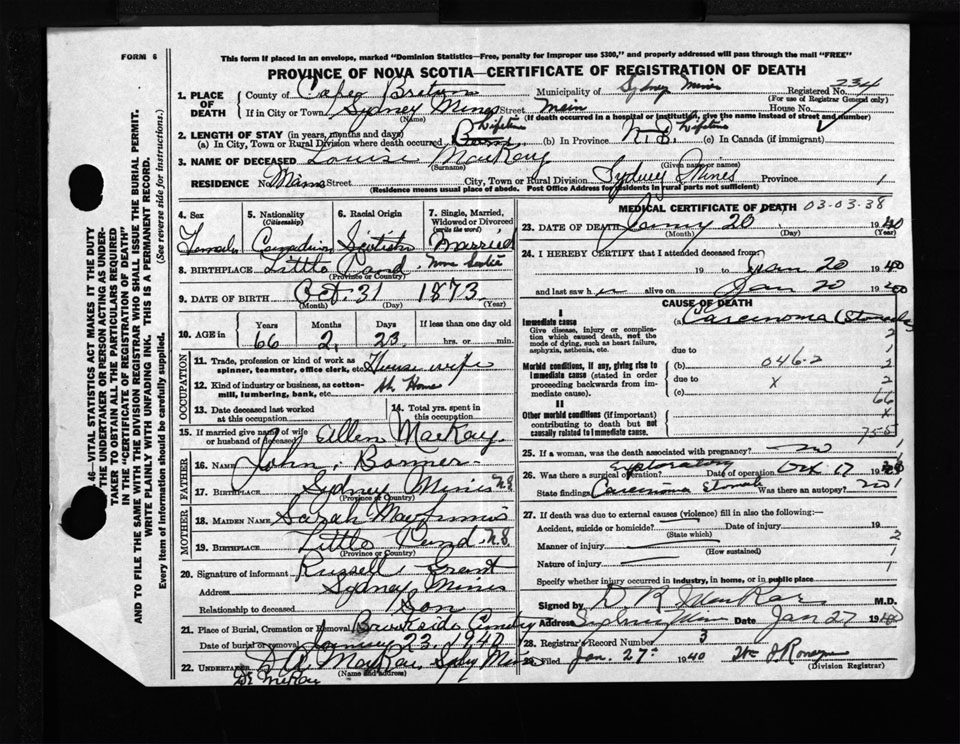 FORM 6
This form if placed in an envelope, marked "Dominion Statistics—Free, penalty for improper use $300," and properly addressed will pass through the mail "FREE"
PROVINCE OF NOVA SCOTIA—CERTIFICATE OF REGISTRATION OF DEATH
1. PLACE OF DEATH County of Cape Breton Municipality of Sydney Mines Registered No. 234
(For use of Registrar General only)
If in City or Town Sydney Mines Street Main House No.
(Name) (If death occurred in a hospital or institution, give the name instead of street and number)
2. LENGTH OF STAY (in years, months and days)
(a) In City, Town or Rural Division where death occurred Lifetime (b) In Province Lifetime (c) In Canada (if immigrant)
3. NAME OF DECEASED Louise MacKay
(Surname) (Given name or names)
RESIDENCE No. Main Street City, Town or Rural Division Sydney Mines Province 1
(Residence means usual place of abode. Post Office Address for residents in rural parts not sufficient)
46—VITAL STATISTICS ACT MAKES IT THE DUTY
THE UNDERTAKER OR PERSON ACTING AS UNDER-
TAKER TO OBTAIN ALL THE PARTICULARS REQUIRED
IN THE "CERTIFICATE OF REGISTRATION OF DEATH"
AND TO FILE THE SAME WITH THE DIVISION REGISTRAR WHO SHALL ISSUE THE BURIAL PERMIT.
WRITE PLAINLY WITH UNFADING INK. THIS IS A PERMANENT RECORD.
Every item of information should be carefully supplied. (See reverse side for instructions.)
4. Sex 5. Nationality (Citizenship) 6. Racial Origin 7. Single, Married, Widowed or Divorced (write the word)
Female Canadian Scotish Married
8. BIRTHPLACE Little Pond
(Province or Country)
9. DATE OF BIRTH Oct. 31 1873
(Month) (Day) (Year)
10. AGE in Years Months Days If less than one day old
66 2 23 hrs. or min.
OCCUPATION
11. Trade, profession or kind of work as spinner, teamster, office clerk, etc. House wife
12. Kind of industry or business, as cotton-mill, lumbering, bank, etc. At Home
13. Date deceased last worked at this occupation
14. Total yrs. spent in this occupation
15. If married give name of wife or husband of deceased Allen MacKay
FATHER
16. NAME John
17. BIRTHPLACE Sydney Mines N.S
(Province or Country)
MOTHER
18. MAIDEN NAME Sarah
19. BIRTHPLACE Little Pond N.S
(Province or Country)
20. Signature of informant Russell Grant
Address Sydney Mines
Relationship to deceased Son
21. Place of Burial, Cremation or Removal Brookside
Date of burial or removal January 23, 1940
22. UNDERTAKER MacKay Sydney Mines
(Name and address)
MEDICAL CERTIFICATE OF DEATH 03-03-38
23. DATE OF DEATH 20 1940
(Month) (Day) (Year)
24. I HEREBY CERTIFY that I attended deceased from
19 to Jan 20 1940
and last saw her alive on Jan 20 1940
CAUSE OF DEATH
I
Immediate cause (a) Carcinoma (Stomach)
Give disease, injury or complication which caused death, not the mode of dying, such as heart failure, asphyxia, asthenia, etc.
due to
Morbid conditions, if any, giving rise to immediate cause (stated in order proceeding backwards from immediate cause).
(b) 046-2
due to x
(c)
II
Other morbid conditions (if important) contributing to death but not causally related to immediate cause.
2
1
2
2
66
x
25. If a woman, was the death associated with pregnancy? no
26. Was there a surgical operation? Exploratory Date of operation 17 19
State findings Carcinoma Stomach Was there an autopsy? no 1
27. If death was due to external causes (violence) fill in also the following:—
Accident, suicide or homicide? Date of injury 19
(State which) 2
Manner of injury
(How sustained) 1
Nature of injury 1
Specify whether injury occurred in industry, in home, or in public place
Signed by D R MacRae M.D.
Address Sydney Mines Date Jan 27 1940
28. Registrar's Record Number 3
29. Filed Jan. 27 1940
(Division Registrar)